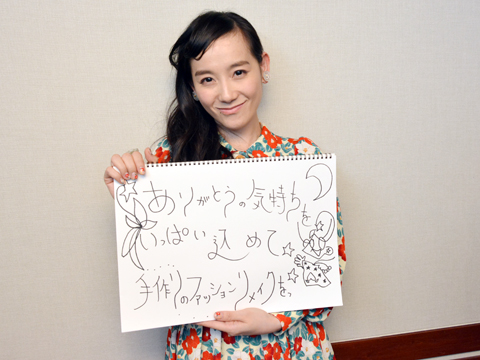 ありがとうの気持ちを
いっぱい込めて☆
手作りのファッションリメイクを。